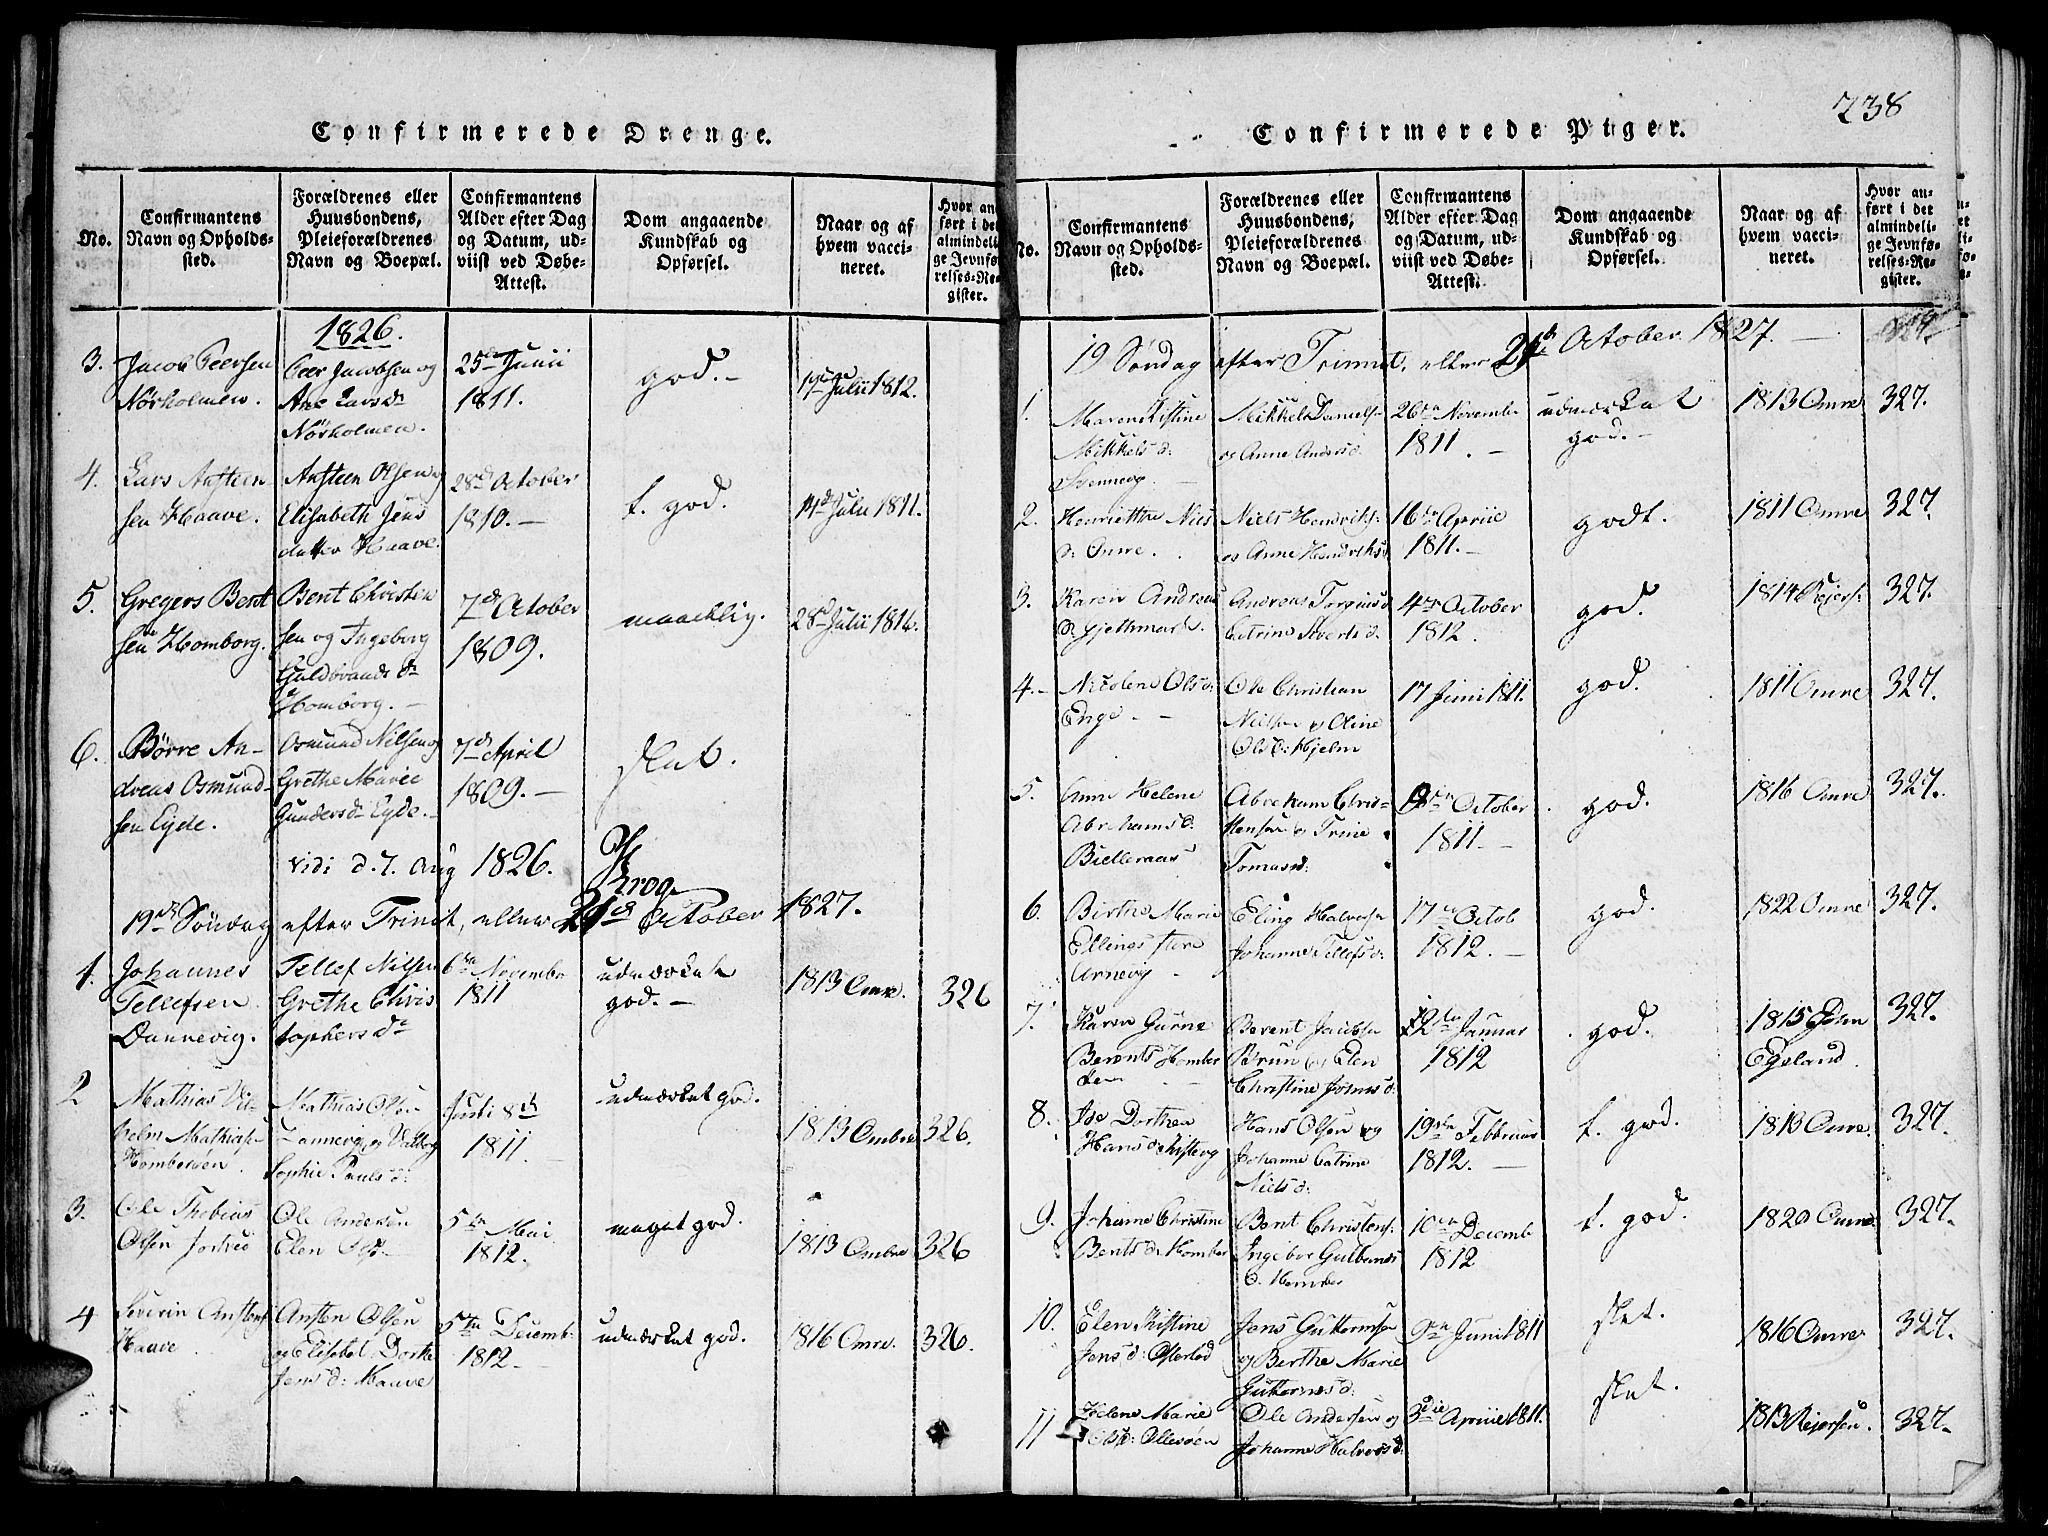 238
Confirmerede Drenge.
No.
Confirmantens Navn og Opholdssted.
Forældrenes eller Huusbondens, Pleieforældrenes Navn og Boepæl.
Confirmantens Alder efter Dag og Datum, udviist ved Døbe-Attest.
Dom angaaende Kundskab og Opførsel.
Naar og af hvem vaccineret.
Hvor anført i det almindelige Jevnførelses-Register.
1826.
3. Jacob Peersen
Nörholmen.
Peer Jacobsen og
Ane Larsdr
Nörholmen.
25de Junii
1811.
god.-
Julii 1812.
4. Lars Ansteen-
sen Haave.
Ansteen Olsen og
Elisabeth Jens
datter Haave.
28de October
1810.-
t. god.
14de Julii 1811.
5. Gregers Bent
sen Homborg.
Bent Christen
sen og Ingeborg
Guldbrands dr
Homborg.-
7de October
1809.
maadelig.
28de Julii 1814.
6. Börre An-
dreas Osmund-
sen Eyde.
Osmund Nilsen og
Grethe Marie
Gundersdr Eyde.-
7de April
1809.-
slet.
vidi d. 7. Aug 1826.
Krog
19de Söndag efter Trinit, eller 21de October 1827.
1. Johannes
Tellefsen
Dannevig.
Tellef Nilsen
Grethe Chris
tophersdr
6te Novembr
1811
udmærket
god.-
1813 Omre.
326
2 Mathias Vil-
helm Mathias-
Homborsöen.
Mathias Olsen
og Vilborg
Sophie Paulsd:
Juli 8de
1811.
udmærket god.
1813 Ombre
326.
3. Ole Thobias
Olsen
Ole Andersen
Elen
5te Mai
1812.
meget god.
1813 Ombre
326
4 Severin Anstens
Haave
Ansten Olsen
og Elisabet Dorte
Jensd: Haave
5te Decemb.
1812.-
udmærket god.
1816 Omre.
326.
Confirmerede Piger.
No.
Confirmantens Navn og Opholdssted.
Forældrenes eller Huusbondens, Pleieforældrenes Navn og Boepæl.
Confirmantens Alder efter Dag og Datum, udviist ved Døbe-Attest.
Dom angaaende Kundskab og Opførsel.
Naar og af hvem vaccineret.
Hvor anført i det almindelige Jevnførelses-Register.
19 Söndag efter Trinnit. eller 21de October 1827.-
1. Maren Kistine
Mikkelsd:
Stennevig
Mikkel Daniels-
og Anne Andersd.
26de Novembr
1811.-
udmærket
god.-
1813 Omre
327.
2. Henriethe Niels
d: Omre.
Niels Hendriks-
og Anne Hendriksd
16de Apriie
1811.-
godt.
1811 Omre
327.
3. Karen Andreas
d:
Andreas
Catrine Sivertsd:
4de October
1812.
god.
1814 Reiers-
327.
4.- Nicolene Olsd:
Enge.-
Ole Christian
Nielsen og Oline
Olsd: Hjelm
17 Juni 1811.
god.
1811 Omre
327.
5. Anne Helene
Abrahamsd:
Bielleraas
Abraham Chris-
tensen og Trine
Tomasd:
October
1811.-
god.
1816 Omre
327.
6. Birthe Marie
Ellings
Arnevig
Eling Halvorsen
Johanne Tellefsd:
17de Octob
1812.-
god.
1822 Omre
327.
7. Karen Gurine
Berents Hombor
Berent Jacobsen
Brun og Elen
Christine Johnsd:
12te Januar
1812
god.
1815 John
Egeland
327.
8. Ise Dorthea
Hansd:
Hans Olsen og
Johanne Catrine
Nielsd:
19de Februar
1812.-
t. god.
1813 Omre.
327.
9. Johanne Christine
Bentsd: Hombor
Bent Christens-
Ingebor Gulbrans
d. Hombor
10de Decemb
1812
t. god.
1820 Omre
327.
10. Elen Kistine
Jensd:
Jens Guttormsen
og Berthe Marie
Guttormsd:
9de Juni 1811
slet.
1816 Omre
327.
11 Helene Marie
Olsd: Ollesöen
Ole Andersen og
Johanne Halvorsd:
3die Apriie 1811.
slet.
1813 Reiersen.
327.